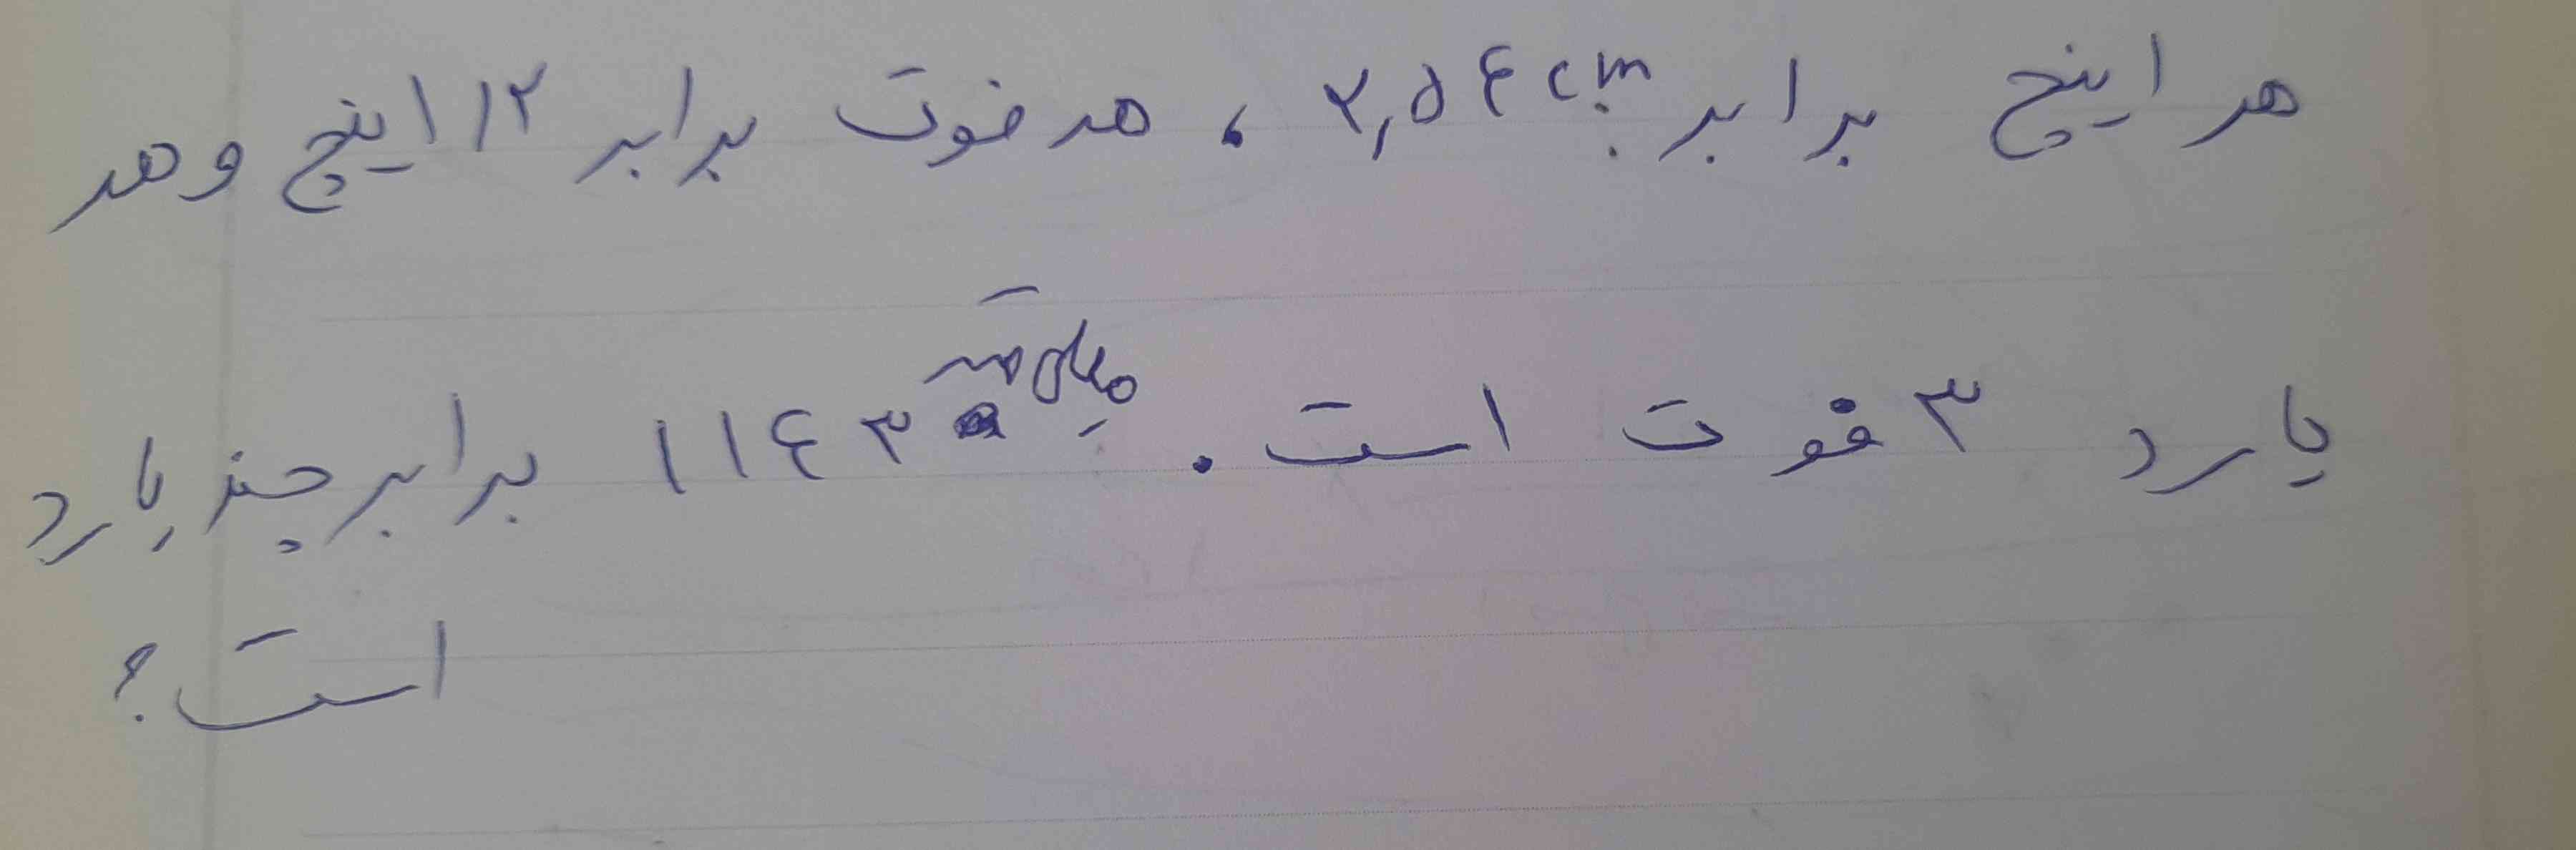 هر اینچ برابر ۲٫۵۴cm ، هر فوت برابر ۱۲ اینچ و هر
یارد ۳ فوت است. ۱۱۴۳ میلی متر برابر چند یارد
است؟